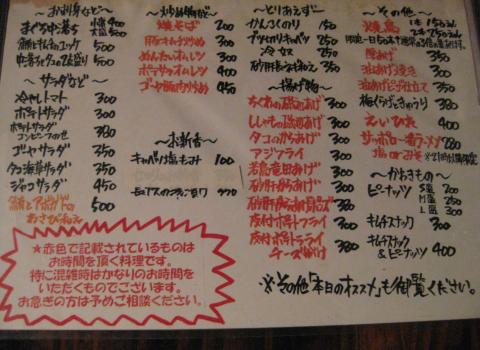 お刺身など
まぐろ中落ち 小盛 400
大盛 500
鮪と牛すじのユッケ 500
中落ユッケの2色盛り 500
～サラダなど～
冷やしトマト 300
ポテトサラダ 300
ポテトサラダ
コンビーフのせ 380
ゴーヤサラダ 350
タコ海草サラダ 350
ジャコサラダ 450
鮪とアボカドの
わさびあえ 500
～炒め物など～
焼そば 200
豚キムチ炒め 300
めんたいオムレツ 300
ポテサラオムレツ 400
ゴーヤ豚肉炒め 450
～お新香～
キャベツ塩もみ 100
～とりあえず～
かんこくのり 100
ブツ切りキャベツ 250
冷奴 250
砂肝長ねぎあえ 350
～揚げ物～
ちくわの磯部あげ 300
ししゃもの磯部あげ 300
タコのから揚げ 300
アジフライ 300
若鳥竜田あげ 350
砂肝から揚げ 350
皮付ポテトフライ 300
皮付ポテトフライ
チーズがけ 380
～その他～
焼鳥 1本 150
2本 250
厚あげ 350
油あげ焼き 300
油あげピザ仕立て 350
梅くらげきゅうり 380
えいひれ 400
サッポロ一番ラーメン 280
塩 or みそ
～かわきもの～
ピーナッツ S皿 200
M皿 250
L皿 300
キムチスナック 300
キムチスナック
&ピーナッツ 400
★赤色で記載されているものは
お時間を頂く料理です。
特に混雑時はかなりのお時間を
いただくものでございます。
お急ぎの方は予めご相談ください。
※その他「本日のオススメ」も御覧ください。